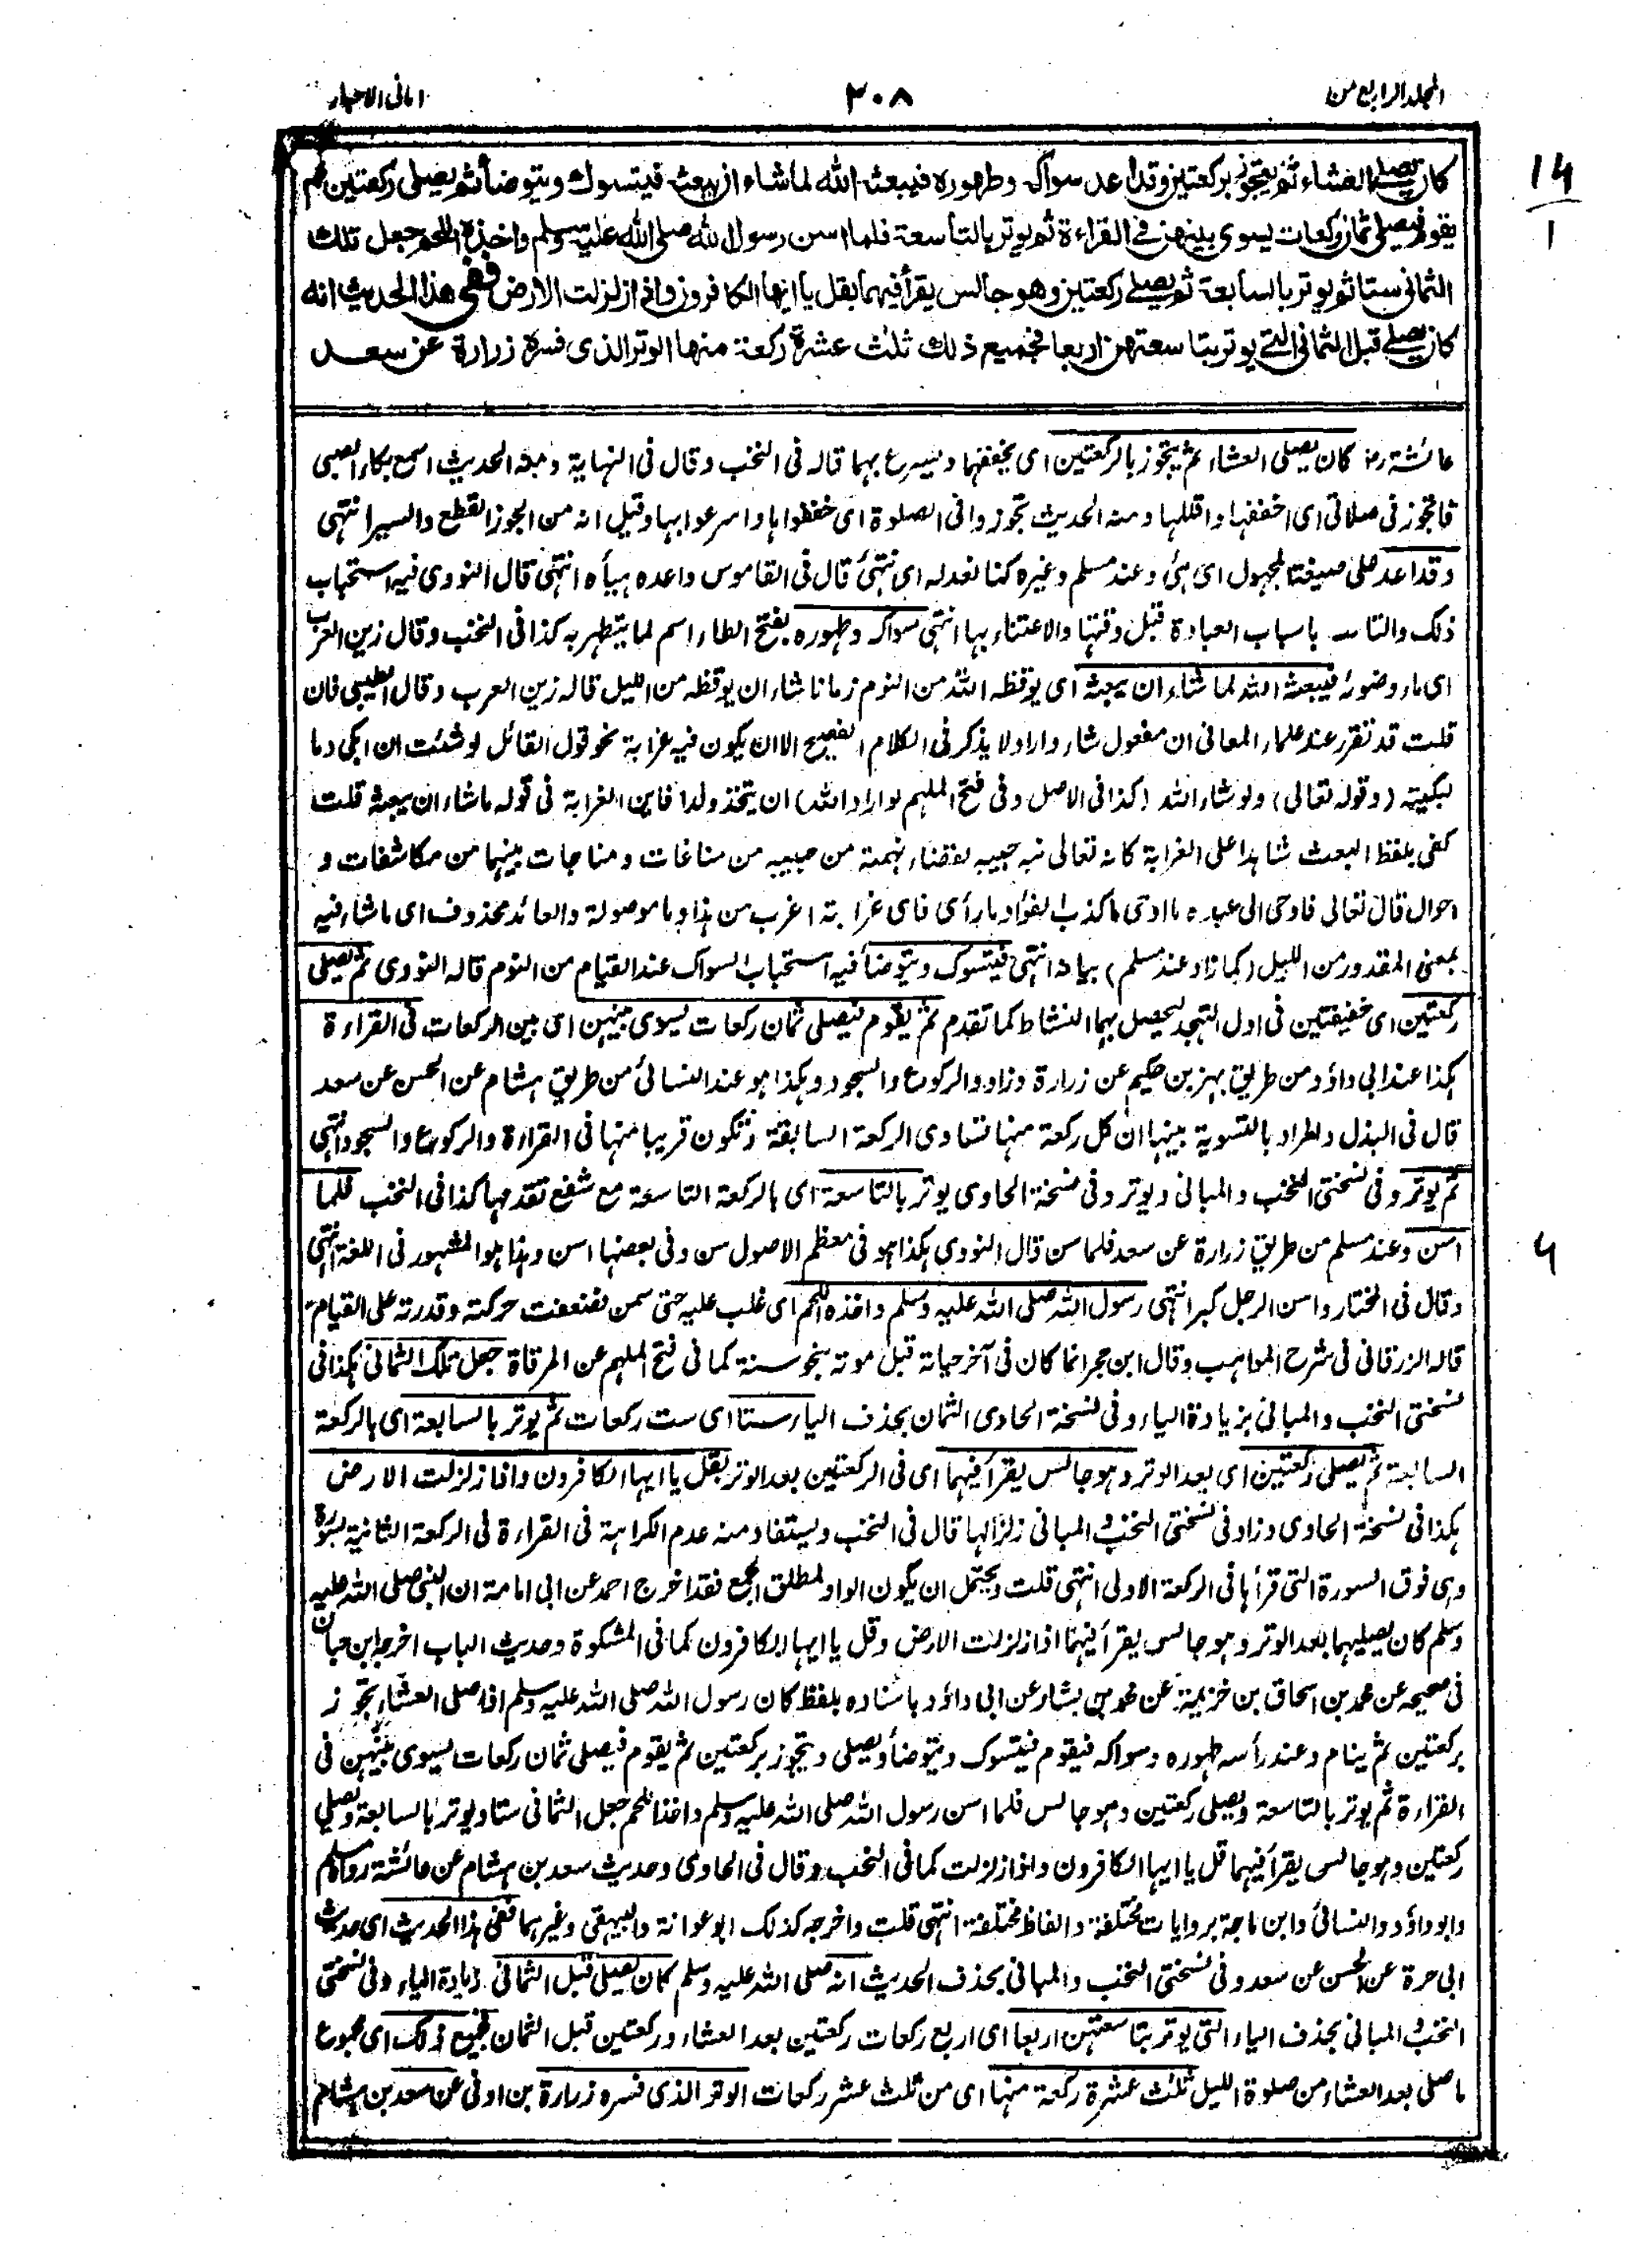 المجلد الرابع من
٣٠٨
امانى الاحبار
كان يصلى العشاء ثم يتجوز بركعتين وقد اعد سواكه وطهوره فيبعثه الله لما شاء ان يبعثه فيتسوك ويتوضأ ثم يصلى ركعتين ثم
يقوم فيصلى ثمان ركعات يسوى بينهن فى القراءة ثم يوتر بالتاسعة فلما اسن رسول الله صلى الله عليه وسلم واخذه اللحم جعل تلك
الثمانى ستا ثم يوتر بالسابعة ثم يصلى ركعتين وهو جالس يقرأ فيهما بقل يا ايها الكافرون واذا زلزلت الارض ففى هذا الحديث انه
كان يصلى قبل الثمانى التى يوتر بتاسعتهن اربعا فجميع ذلك ثلث عشرة ركعة منها الوتر الذى فسره زرارة عن سعد
عائشة رض كان يصلى العشاء ثم يتجوز بالركعتين اى يخففهما ويسرع بهما قاله فى النخب وقال فى النهاية ومنه الحديث اسمع بكاء الصبى
فاتجوز فى صلاتى اى اخففها واقللها ومنه الحديث تجوزوا فى الصلوة اى خففوا بها واسرعوا بها وقيل انه من الجوز القطع والسير انتهى
وقد اعد على صيغة المجهول اى هئ وعند مسلم وغيره كنا نعد له اى نهئ قال فى القاموس واعده هيأه انتهى قال النووى فيه استحباب
ذلك والتاهب باسباب العبادة قبل وقتها والاعتناء بها انتهى سواكه وطهوره بفتح الطاء اسم لما يتطهر به كذا فى النخب وقال زين العرب
اى ماء وضوئه فيبعثه الله لما شاء ان يبعثه اى يوقظه الله من النوم زمانا شاء ان يوقظه من الليل قاله زين العرب وقال الطيبى فان
قلت قد تقرر عند علماء المعانى ان مفعول شاء واراد لا يذكر فى الكلام الفصيح الا ان يكون فيه غرابة نحو قول القائل لو شئت ان ابكى دما
لبكيته (وقوله تعالى) ولو شاء الله (كذا فى الاصل وفى فتح الملهم لو اراد الله) ان يتخذ ولدا فاين الغرابة فى قوله ما شاء ان يبعثه قلت
كفى بلفظ البعث شاهدا على الغرابة كانه تعالى نبه حبيبه لقضاء نهمته من حبيبه من مناغات ومناجات بينهما من مكاشفات و
احوال قال تعالى فاوحى الى عبده ما اوحى ما كذب الفؤاد ما رأى فاى غرابة اغرب من هذا وما موصولة والعائد محذوف اى ما شاء فيه
بمعنى المقدور من الليل (كما زاد عند مسلم) بيانه انتهى فيتسوك ويتوضأ فيه استحباب السواك عند القيام من النوم قاله النووى ثم يصلى
ركعتين اى خفيفتين فى اول التهجد ليحصل بهما النشاط كما تقدم ثم يقوم فيصلى ثمان ركعات يسوى بينهن اى بين الركعات فى القراءة
هكذا عند ابى داؤد من طريق بهز بن حكيم عن زرارة وزاد والركوع والسجود وهكذا هو عند النسائى من طريق هشام عن الحسن عن سعد
قال فى البذل والمراد بالتسوية بينها ان كل ركعة منها تساوى الركعة السابقة وتكون قريبا منها فى القراءة والركوع والسجود انتهى
ثم يوتر وفى نسختى النخب والمبانى ويوتر وفى نسخة الحاوى يوتر بالتاسعة اى بالركعة التاسعة مع شفع تقدمها كذا فى النخب فلما
اسن وعند مسلم من طريق زرارة عن سعد فلما سن قال النووى هكذا هو فى معظم الاصول سن وفى بعضها اسن وهذا هو المشهور فى اللغة انتهى
وقال فى المختار واسن الرجل كبر انتهى رسول الله صلى الله عليه وسلم واخذه اللحم اى غلب عليه حتى سمن فضعفت حركته وقدرته على القيام
قاله الزرقانى فى شرح المواهب وقال ابن حجر انما كان فى آخر حياته قبل موته بنحو سنة كما فى فتح الملهم عن المرقاة جعل تلك الثمانى هكذا فى
نسختى النخب والمبانى بزيادة الياء وفى نسخة الحاوى الثمان بحذف الياء ستا اى ست ركعات ثم يوتر بالسابعة اى بالركعة
السابعة ثم يصلى ركعتين اى بعد الوتر وهو جالس يقرأ فيهما اى فى الركعتين بعد الوتر بقل يا ايها الكافرون واذا زلزلت الارض
هكذا فى نسخة الحاوى وزاد فى نسختى النخب والمبانى زلزالها قال فى النخب ويستفاد منه عدم الكراهة فى القراءة فى الركعة الثانية بسورة
وهى فوق السورة التى قرأها فى الركعة الاولى انتهى قلت ويحتمل ان يكون الواو لمطلق الجمع فقد اخرج احمد عن ابى امامة ان النبى صلى الله عليه
وسلم كان يصليهما بعد الوتر وهو جالس يقرأ فيهما اذا زلزلت الارض وقل يا ايها الكافرون كما فى المشكوة وحديث الباب اخرجه ابن حبان
فى صحيحه عن محمد بن اسحاق بن خزيمة عن محمد بن بشار عن ابى داؤد باسناده بلفظ كان رسول الله صلى الله عليه وسلم اذا صلى العشاء تجوز
بركعتين ثم ينام وعند رأسه طهوره وسواكه فيقوم فيتسوك ويتوضأ ويصلى ويتجوز بركعتين ثم يقوم فيصلى ثمان ركعات يسوى بينهن فى
القراءة ثم يوتر بالتاسعة ويصلى ركعتين وهو جالس فلما اسن رسول الله صلى الله عليه وسلم واخذ اللحم جعل الثمانى ستا ويوتر بالسابعة ويصلى
ركعتين وهو جالس يقرأ فيهما قل يا ايها الكافرون واذا زلزلت كما فى النخب وقال فى الحاوى وحديث سعد بن هشام عن عائشة رواه مسلم
وابو داؤد والنسائى وابن ماجة بروايات مختلفة والفاظ مختلفة انتهى قلت واخرجه كذلك ابو عوانة والبيهقى وغيرهما ففى هذا الحديث اى حديث
ابى حرة عن الحسن عن سعد وفى نسختى النخب والمبانى بحذف الحديث انه صلى الله عليه وسلم كان يصلى قبل الثمانى زيادة الياء وفى نسختى
النخب والمبانى بحذف الياء التى يوتر بتاسعتهن اربعا اى اربع ركعات ركعتين بعد العشاء وركعتين قبل الثمان فجميع ذلك اى مجموع
ما صلى بعد العشاء من صلوة الليل ثلث عشرة ركعة منها اى من ثلث عشر ركعات الوتر الذى فسره زرارة بن اوفى عن سعد بن هشام